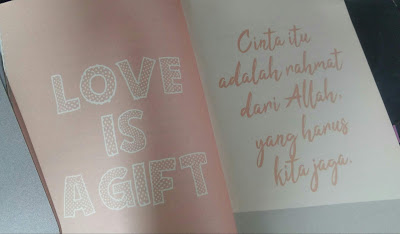 LOVE
IS
A GIFT
Cinta itu
adalah rahmat
dari Allah,
yang harus
kita jaga.